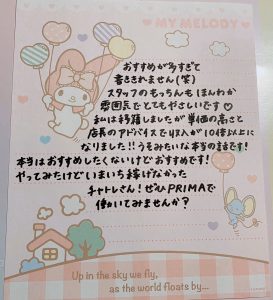 MY MELODY
おすすめが多すぎて
書ききれません(笑)
スタッフのもっちんもほんわか
雰囲気でとてもやさしいです♡
私は移籍しましたが単価の高さと
店長のアドバイスで収入が10倍以上に
なりました!!うそみたいな本当の話です!
本当はおすすめしたくないけどおすすめです!
やってみたけどいまいち稼げなかった
チャトレさん!ぜひPRIMAで
働いてみませんか?
Up in the sky we fly,
as the world floats by...